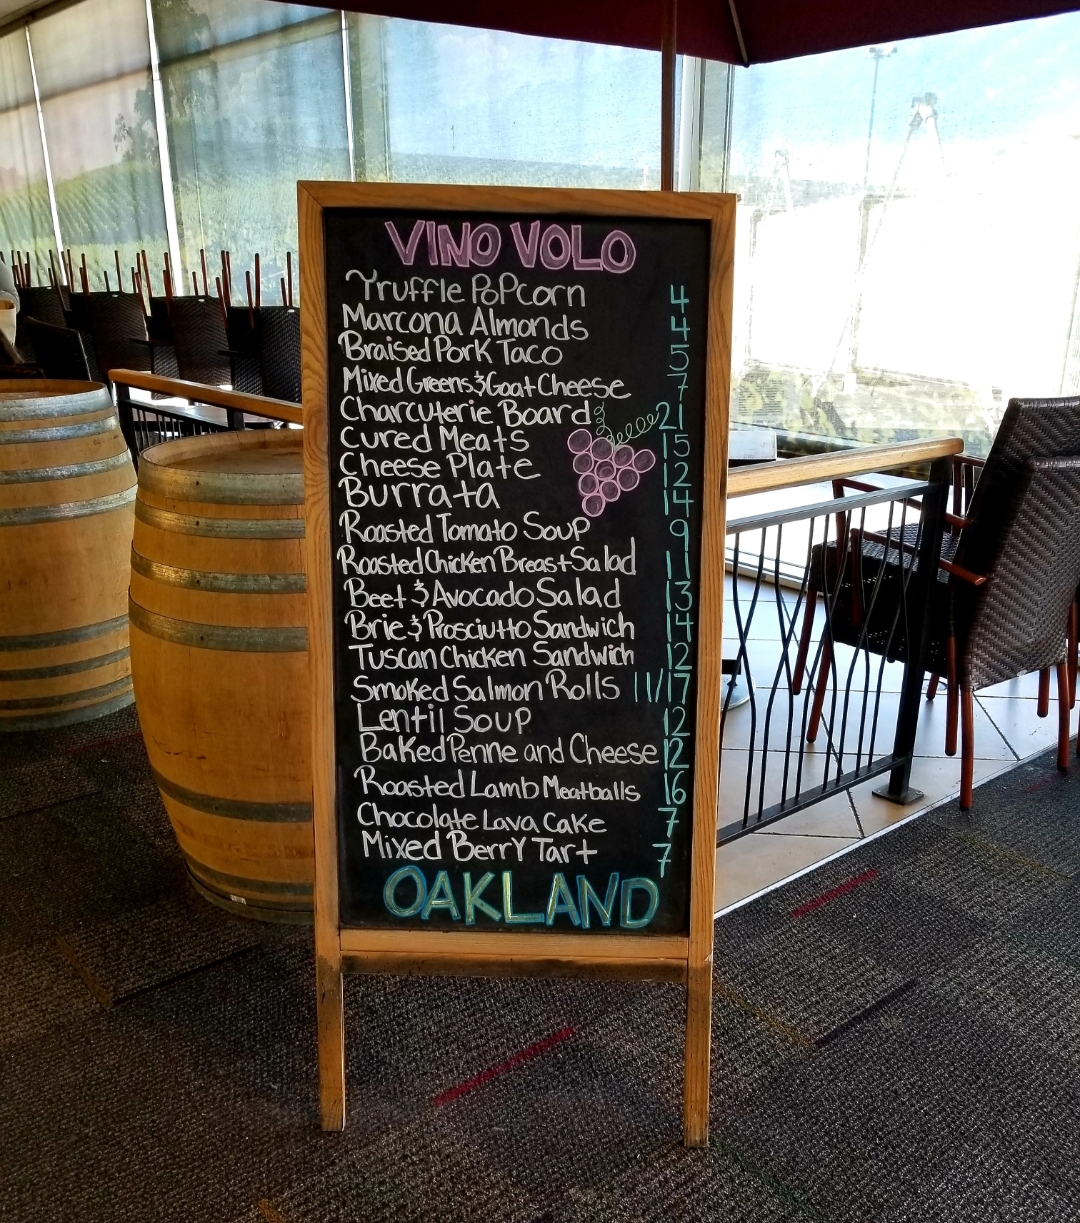 VINO VOLO
Truffle PoPcorn 4
Marcona Almonds 4
Braised Pork Taco 5
Mixed Greens & Goat Cheese 7
Charcuterie Board 21
Cured Meats 15
Cheese Plate 12
Burrata 14
Roasted Tomato Soup 9
Roasted Chicken Breast Salad 11
Beet & Avocado Salad 13
Brie & Prosciutto Sandwich 14
Tuscan Chicken Sandwich 12
Smoked Salmon Rolls 11/17
Lentil Soup 12
Baked Penne and Cheese 12
Roasted Lamb Meatballs 16
Chocolate Lava Cake 7
Mixed Berry Tart 7
OAKLAND